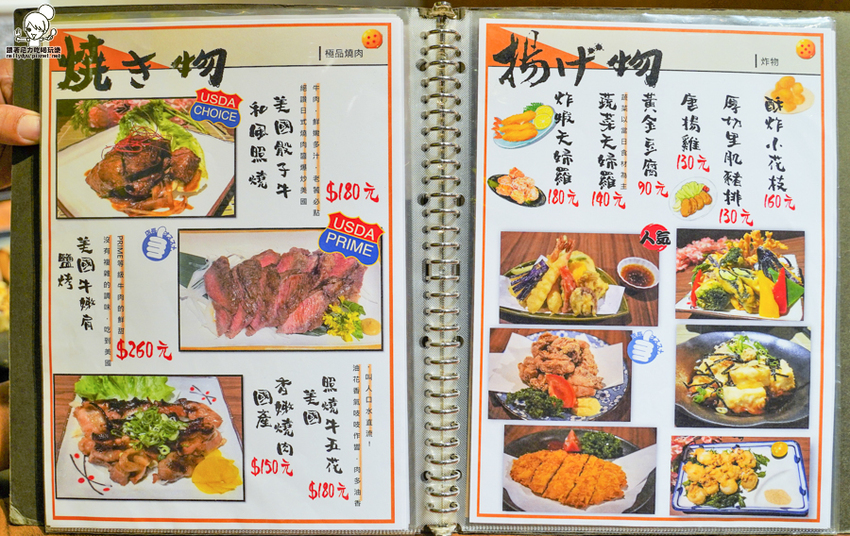 跟著尼力吃喝玩樂
焼き物
極品燒肉
USDA
CHOICE
美國骰子牛
和風照燒
牛肉，鮮嫩多汁，老饕必點
絕讚日式燒肉醬爆炒美國
$180元
USDA
PRIME
美國牛嫩肩
鹽烤
PRIME等級牛肉的鮮甜
沒有複雜的調味，吃到美國
$260元
照燒牛五花
美國
$180元
！叫人口水直流！
油花香氣吱吱作響，肉多油香
香嫩燒肉
國產
$150元
揚げ物
炸物
酥炸小花枝
160元
厚切里肌豬排
130元
唐揚雞
130元
黃金豆腐
90元
蔬菜天婦羅
蔬菜以當日食材為主
140元
炸蝦天婦羅
180元
人氣